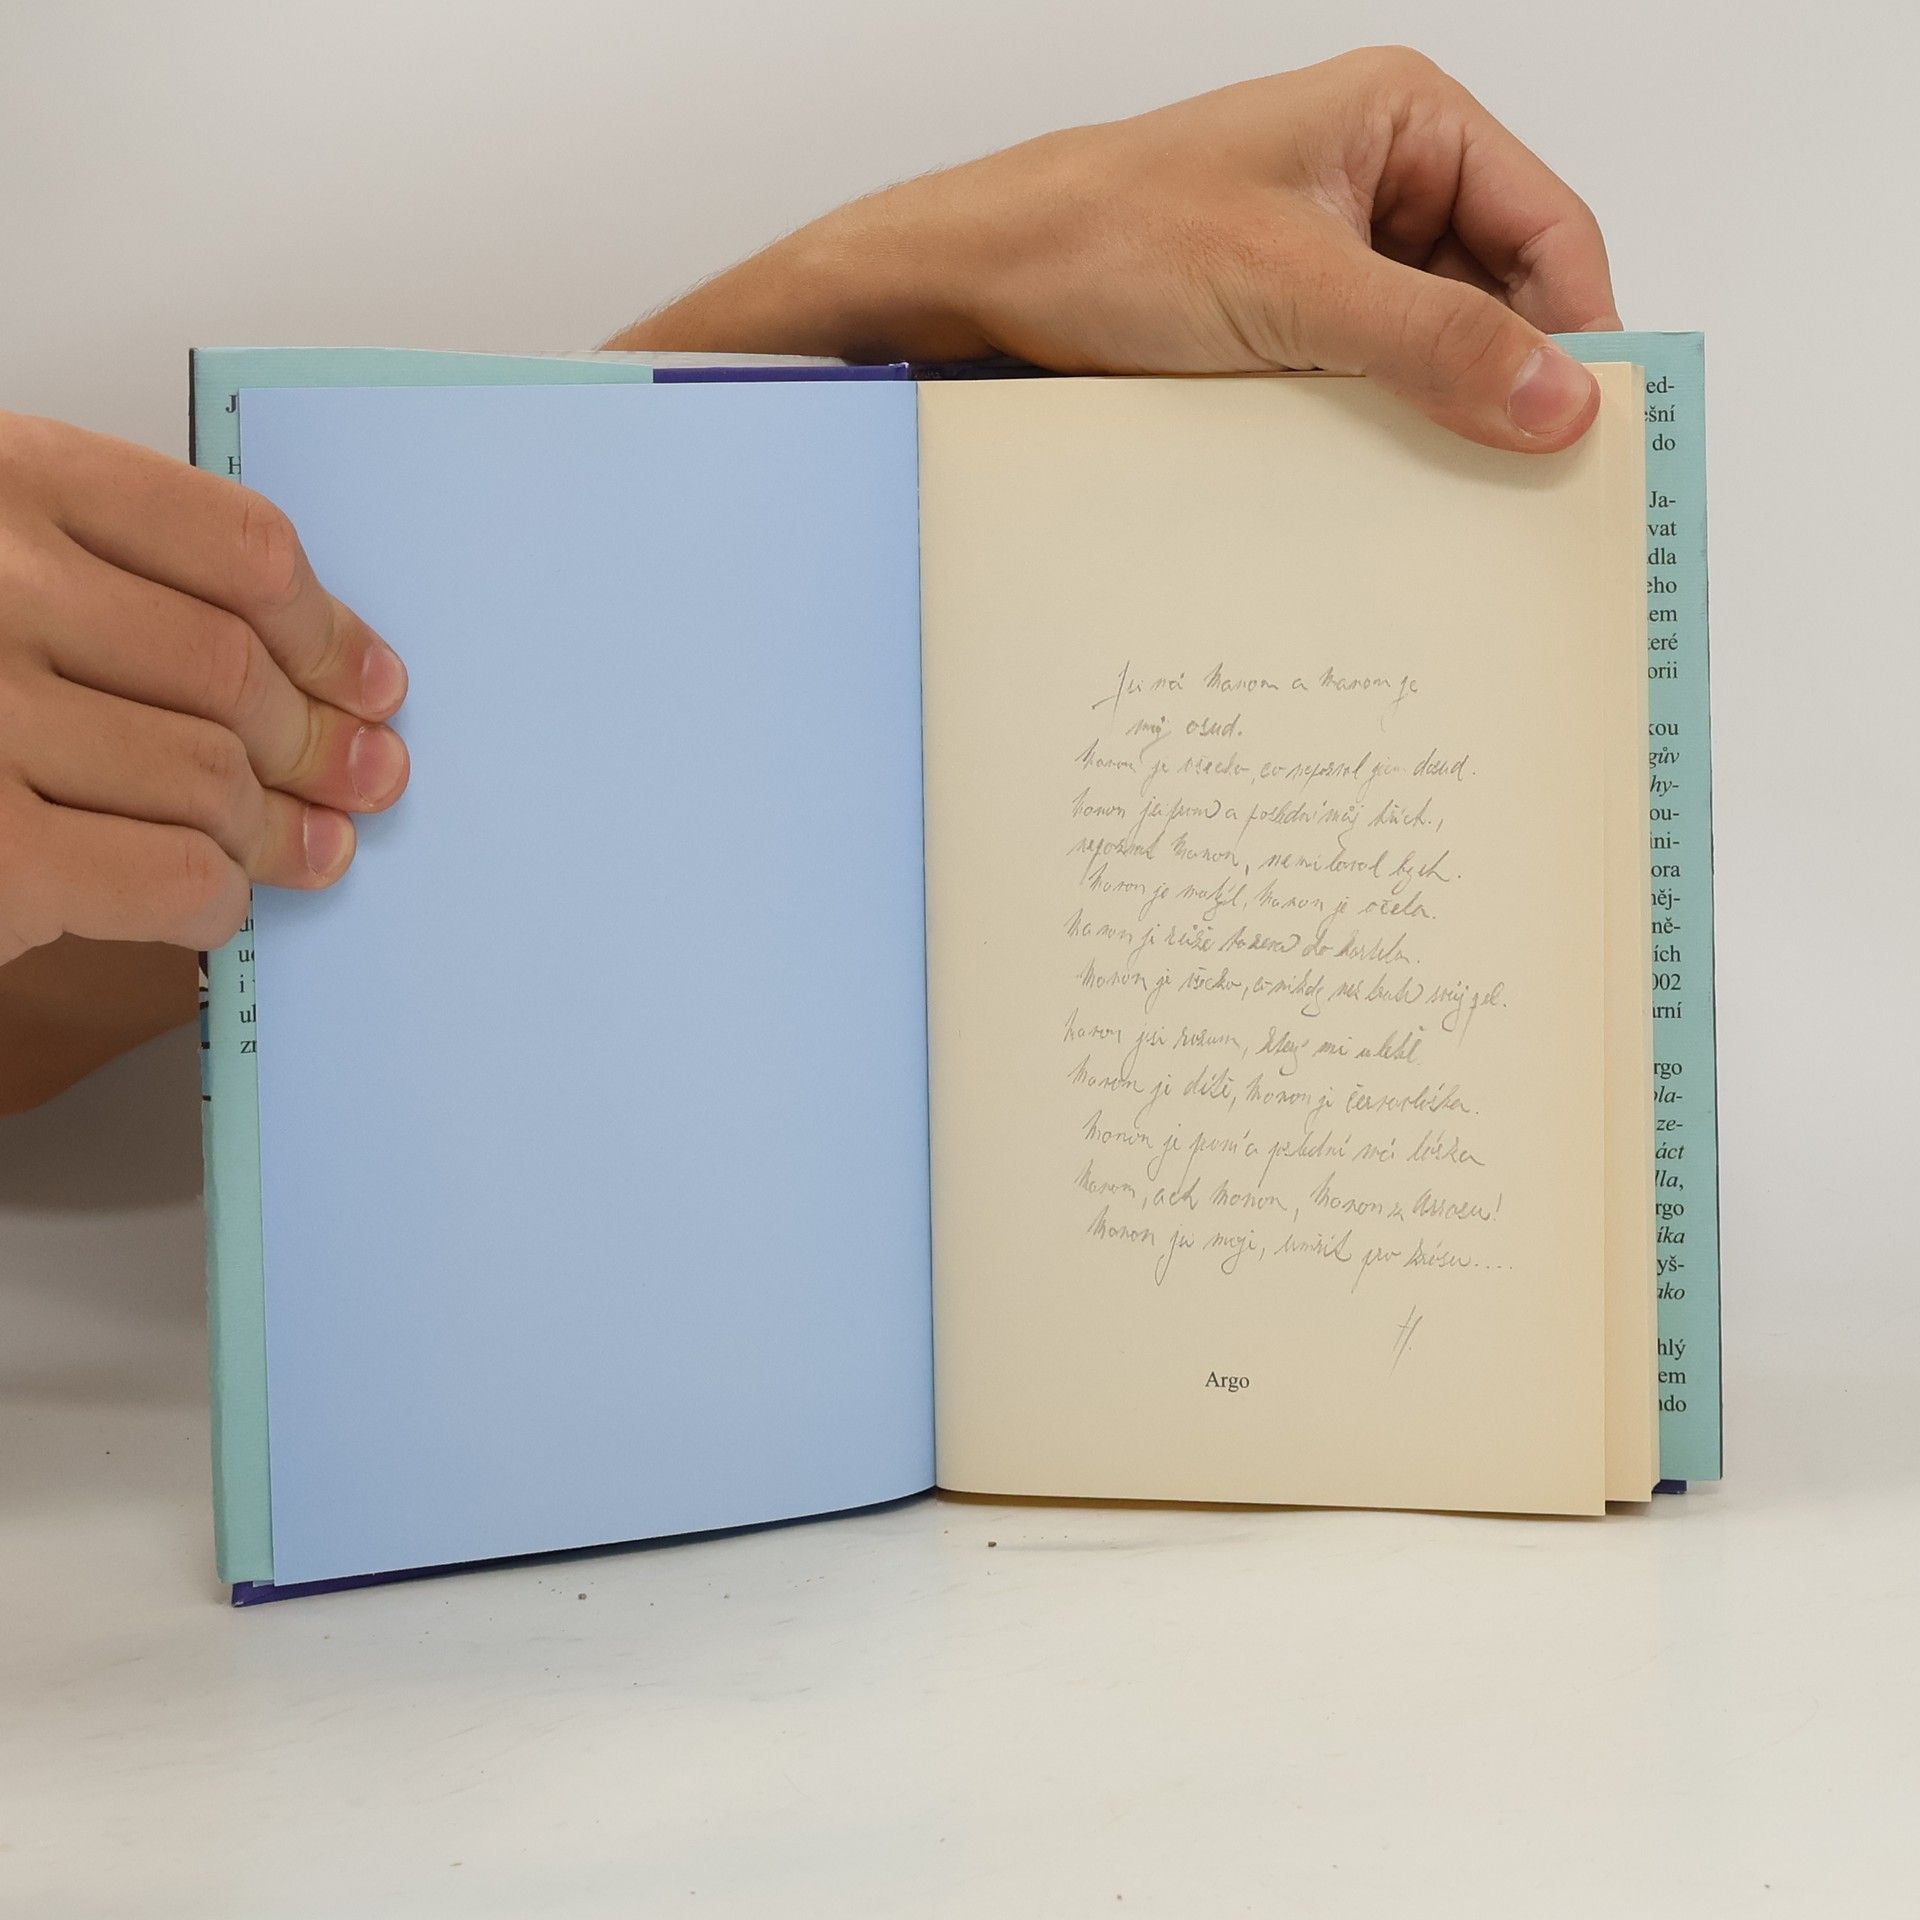 J
H
u
i
ul
zn
ed-
ešní
do
Ja-
vat
dla
eho
zem
teré
orii
kou
gův
hy-
ou-
ini-
ora
něj-
ně-
ích
002
ární
rgo
ola-
ze-
áct
lla,
rgo
íka
yš-
ako
hlý
em
ndo
Jsi má Manon a Manon je
můj osud.
Manon je všecko, co nepoznal jsem dosud.
Manon je první a poslední můj hřích,
nepoznat Manon, nemiloval bych.
Manon je motýl, Manon je včela.
Manon je růže hozená do kostela.
Manon je všecko, co nikdy neztratí svůj pel.
Manon je rozum, který mi uletěl.
Manon je dítě, Manon je černovláska.
Manon je první a poslední má láska
Manon, ach Manon, Manon z Arrasu!
Manon je moje, umřít pro krásu....
H.
Argo